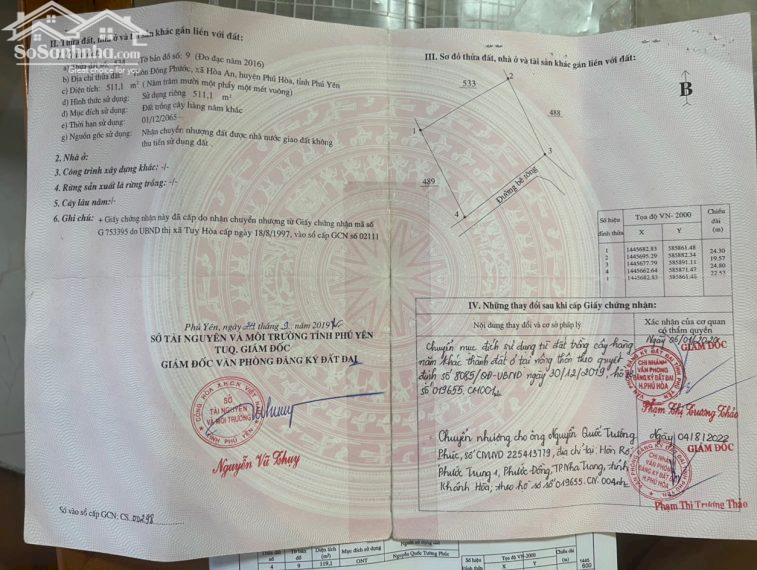 SoSanhnha.com
Great choice for you
II. Thửa đất, nhà ở và tài sản khác gắn liền với đất:
Tờ bản đồ số: 9 (Đo đạc năm 2016)
b) Địa chỉ thửa đất: Thôn Đông Phước, xã Hòa An, huyện Phú Hòa, tỉnh Phú Yên
c) Diện tích: 511,1 m² (Năm trăm mười một phẩy một mét vuông)
d) Hình thức sử dụng: Sử dụng riêng 511,1 m²
đ) Mục đích sử dụng: Đất trồng cây hàng năm khác
e) Thời hạn sử dụng: 01/12/2065
g) Nguồn gốc sử dụng: Nhận chuyển nhượng đất được nhà nước giao đất không
thu tiền sử dụng đất.
2. Nhà ở:
3. Công trình xây dựng khác: -/-
4. Rừng sản xuất là rừng trồng: -/-
5. Cây lâu năm: -/-
6. Ghi chú: + Giấy chứng nhận này đã cấp do nhận chuyển nhượng từ Giấy chứng nhận mã số
G 753395 do UBND thị xã Tuy Hòa cấp ngày 18/8/1997, vào sổ cấp GCN số 02111
Phú Yên, ngày 24 tháng 9 năm 2019
SỞ TÀI NGUYÊN VÀ MÔI TRƯỜNG TỈNH PHÚ YÊN
TUQ. GIÁM ĐỐC
GIÁM ĐỐC VĂN PHÒNG ĐĂNG KÝ ĐẤT ĐAI
CỘNG HÒA X.H.C.N VIỆT NAM
SỞ
TÀI NGUYÊN
VÀ MÔI TRƯỜNG
TỈNH PHÚ YÊN
Nguyễn Vũ Thụy
Số vào sổ cấp GCN: CS 00298
III. Sơ đồ thửa đất, nhà ở và tài sản khác gắn liền với đất:
533
2
B
488
1
3
489
Đường bê tông
4
Số hiệu đỉnh thửa Tọa độ VN- 2000 Chiều dài (m)
X Y
1 1445682.83 585861.48
24.30
2 1445695.29 585882.34
19.57
3 1445677.79 585891.11
24.80
4 1445662.64 585871.47
22.53
1 1445682.83 585861.48
IV. Những thay đổi sau khi cấp Giấy chứng nhận:
Nội dung thay đổi và cơ sở pháp lý
Xác nhận của cơ quan
có thẩm quyền
Chuyển mục đích sử dụng từ đất trồng cây hàng
năm khác thành đất ở tại nông thôn theo quyết
định số 8085/QĐ-UBND ngày 30/12/2019, hồ sơ
số 019655.CM001
GIÁM ĐỐC
CHI NHÁNH
VĂN PHÒNG
ĐĂNG KÝ ĐẤT ĐAI
H.PHÚ HÒA
Phạm Thị Trương Thảo
- Chuyển nhượng cho ông Nguyễn Quốc Trường
Phúc, số CMND 225413779, địa chỉ tại: Hòn Rớ,
Phước Trung 1, Phước Đồng, TP Nha Trang, tỉnh
Khánh Hòa, theo hồ sơ số 019655.CN.004
Ngày 04/8/2022
GIÁM ĐỐC
CHI NHÁNH
VĂN PHÒNG
ĐĂNG KÝ ĐẤT ĐAI
H.PHÚ HÒA
Phạm Thị Trương Thảo
Tờ bản đồ Diện tích (m²) Mục đích sử dụng Người sử dụng đất Số hiệu đỉnh thửa Tọa độ VN-2000 Chiều dài (m)
4 9 119,1 ONT Nguyễn Quốc Tường Phúc